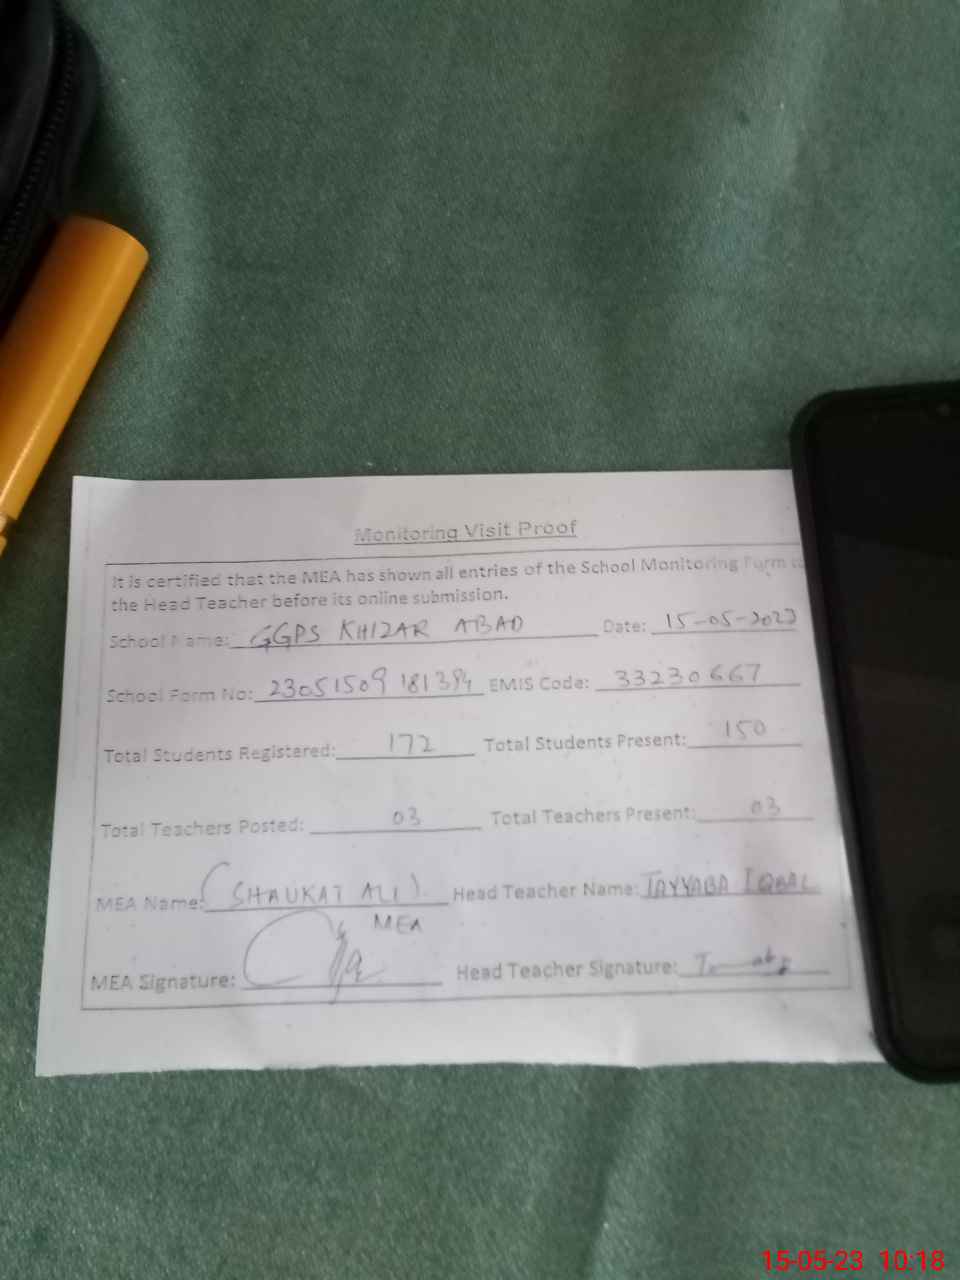 Monitoring Visit Proof
It is certified that the MEA has shown all entries of the School Monitoring Form to
the Head Teacher before its online submission.
School Name: GGPS KHIZAR ABAD Date: 15-05-2023
School Form No: 23051509181394 EMIS Code: 33230667
Total Students Registered: 172 Total Students Present: 150
Total Teachers Posted: 03 Total Teachers Present: 03
MEA Name: (SHAUKAT ALI) Head Teacher Name: TAYYABA IQBAL
MEA
MEA Signature: Head Teacher Signature:
15-05-23 10:18